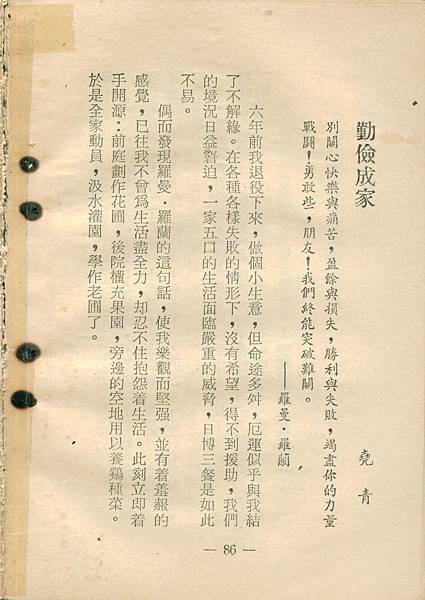 勤儉成家
堯青
別關心快樂與痛苦，盈餘與損失，勝利與失敗，竭盡你的力量
戰鬪！勇敢些，朋友！我們終能突破難關。
——羅曼·羅蘭
六年前我退役下來，做個小生意，但命途多舛，厄運似乎與我結
了不解緣。在各種各樣失敗的情形下，沒有希望，得不到援助，我們
的境況日益窘迫，一家五口的生活面臨嚴重的威脅，日博三餐是如此
不易。
偶而發現羅曼·羅蘭的這句話，使我樂觀而堅强，並有着羞赧的
感覺，已往我不曾爲生活盡全力，却忍不住抱怨着生活。此刻立即着
手開源：前庭劃作花圃，後院權充果園，旁邊的空地用以養鷄種菜。
於是全家動員，汲水灌園，學作老圃了。
— 86 —